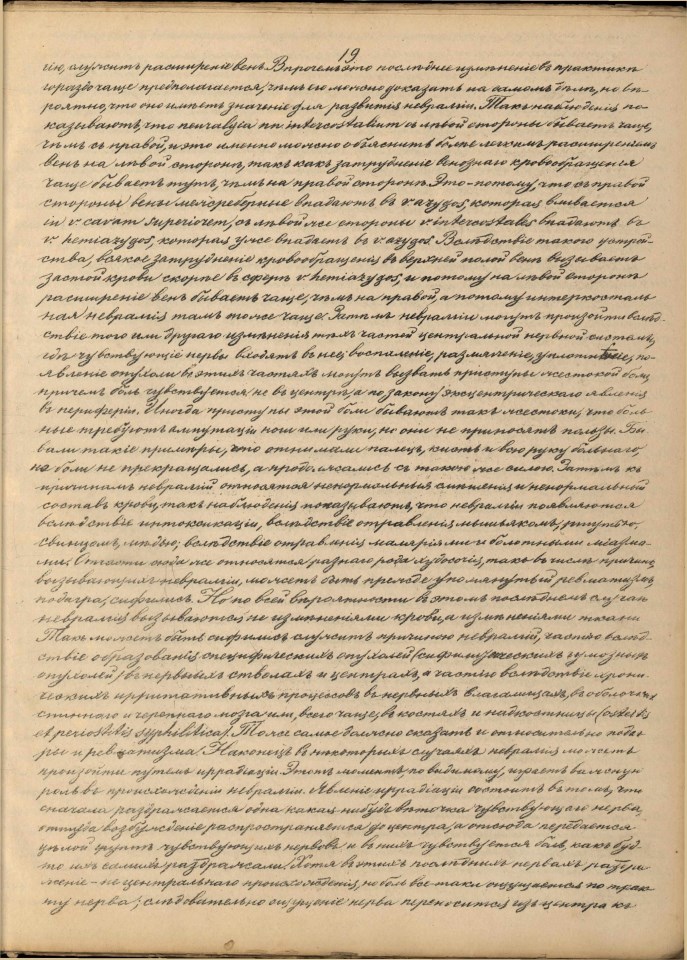 19
гію, служитъ расширеніе венъ. Впрочемъ это послѣднее измѣненіе въ практикѣ
гораздо чаще предполагается, чѣмъ его можно доказать на самомъ дѣлѣ, но вѣ-
роятно, что оно имѣетъ значеніе для развитія невралгіи. Такъ наблюденія по-
казываютъ, что nevralgia nn intercostalium съ лѣвой стороны бываетъ чаще,
чѣмъ съ правой, и это именно можно объяснить болѣе легкимъ расширеніемъ
венъ на лѣвой сторонѣ, такъ какъ затрудненіе венознаго кровообращенія
чаще бываетъ тутъ, чѣмъ на правой сторонѣ. Это-потому, что съ правой
стороны вены межреберные впадаютъ въ v azygos, которая вливается
in v. cavam superiorem, съ лѣвой же стороны v intercostales впадаютъ въ
v. hemiazygos, которая уже впадаетъ въ v azygos. Вслѣдствіе такого устрой-
ства, всякое затрудненіе кровообращенія въ верхней полой венѣ вызываетъ
застой крови скорѣе въ сферѣ v hemiazygos, и потому на лѣвой сторонѣ
расширеніе венъ бываетъ чаще, чѣмъ на правой, а потому интеркосталь
ная невралгія тамъ тоже чаще. Затѣмъ невралгіи могутъ произойти вслѣд-
ствіе того или другаго измѣненія тѣхъ частей центральной нервной системы,
гдѣ чувствующіе нервы входятъ въ неё; воспаленіе, размягченіе, уплотненіе, по-
явленіе опухоли въ этихъ частяхъ могутъ вызвать приступы жестокой боли,
причемъ боль чувствуется не въ центрѣ, а по закону эксцентрическаго явленія
въ периферіи. Иногда приступы этой боли бываютъ такъ жестоки, что боль
ные требуютъ ампутаціи ноги или руки, но они не приносятъ пользы. Бы
вали такіе примѣры, что отнимали палецъ, кисть и всю руку больнаго,
но боли не прекращались, а продолжались съ такою же силою. Затѣмъ къ
причинамъ невралгій относятся ненормальныя и ненормальной
составъ крови, такъ наблюденія показываютъ, что невралгіи появляются
вслѣдствіе интоксикаціи, вслѣдствіе отравленія мышьякомъ, ртутью,
свинцомъ, мѣдью; вслѣдствіе отравленія маляріями и болотными міазма
ми. Отчасти сюда же относятся разнаго рода худосочія, такъ въ числѣ причинъ
вызывающихъ невралгіи, можетъ быть прежде упомянутый ревматизмъ,
подагра, сифилисъ. Но по всей вѣроятности въ этомъ послѣднемъ случаѣ
невралгія вызываются не измѣненіями крови, а измѣненіями ткани
Такъ можетъ быть сифилисъ служитъ причиною невралгій, частью вслѣд-
ствіе образованія специфическихъ опухолей (сифилитическихъ гумозныхъ
опухолей) въ нервныхъ стволахъ и центрахъ, а частью вслѣдствіе хрони-
ческихъ ирритативныхъ процессовъ въ нервныхъ влагалищахъ, въ оболочкахъ
спиннаго и черепнаго мозга или, всего чаще, въ костяхъ и надкостницѣ (osteitis
et periostitis syphilitica). Тоже самое должно сказать и относительно подаг
ры и ревматизма. Наконецъ въ нѣкоторыхъ случаяхъ невралгія можетъ
произойти путемъ иррадіаціи. Этотъ моментъ, по видимому, играетъ важную
роль въ происхожденіи невралгіи. Явленіе иррадіаціи состоитъ въ томъ, что
сначала раздражается одна какая-нибудь вѣточка чувствующаго нерва,
откуда возбужденіе распространяется до центра, а отсюда передается
цѣлой группѣ чувствующихъ нервовъ и въ нихъ чувствуется боль, какъ буд-
то ихъ самихъ раздражали. Хотя въ этихъ послѣднихъ нервахъ раздра
женіе - не центральнаго происхожденія, но боль все таки ощущается по трак
ту нерва; слѣдовательно ощущеніе нерва переносится изъ центра къ